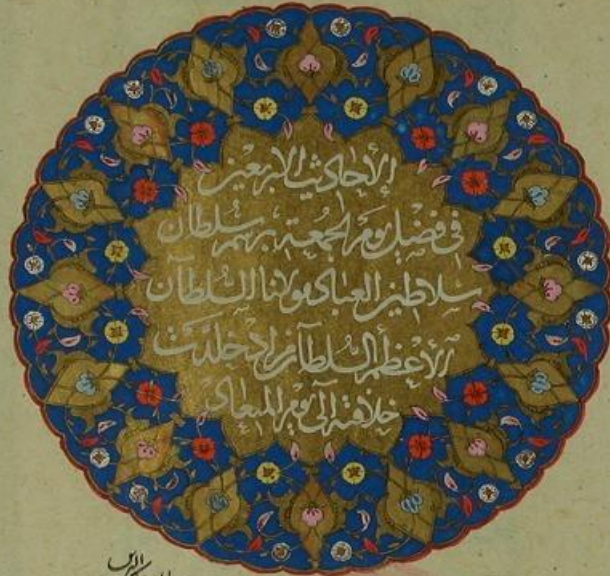 الأحاديث الاربعين
فى فضل يوم الجمعة برسم سلطان
سلاطين العباد مولانا السلطان
الأعظم السلطان مراد خلدت
خلافته الى يوم الميعاد